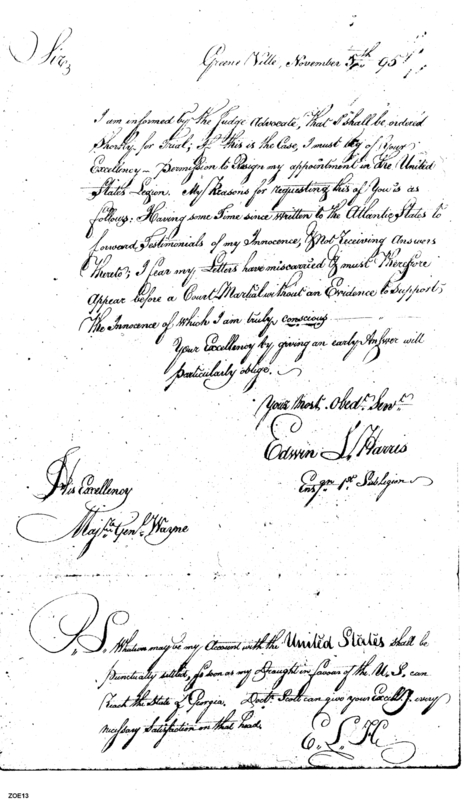 Sir,
Greene Ville, November 5th 95
I am informed by the Judge Advocate, that I shall be ordered
shortly for Trial; If this is the Case, I must beg of Your
Excellency - permission to Resign my appointment in the United
States Legion. My Reasons for requesting this of You is as
follows: Having some Time since written to the Atlantic States to
forward Testimonials of my Innocence, & Not receiving Answers
thereto; I fear my Letters have miscarried & must Therefore
Appear before a Court Martial without an Evidence to Support
the Innocence of which I am truly conscious
Your Excellency by giving an early Answer will
particularly oblige.
Your Most. Obedt. Servt.
Edwin L. Harris
Ensgn 1st SubLegion
His Excellency
Majr. Genl. Wayne
P.S. Whatsoever may be my Account with the United States shall be
punctually settled, so soon as my Draught in favour of the U.S. can
reach the State of Georgia, Doctr. Scott can give your Excelly. every
necessary Satisfaction on that head.
E. L. H
ZOE13